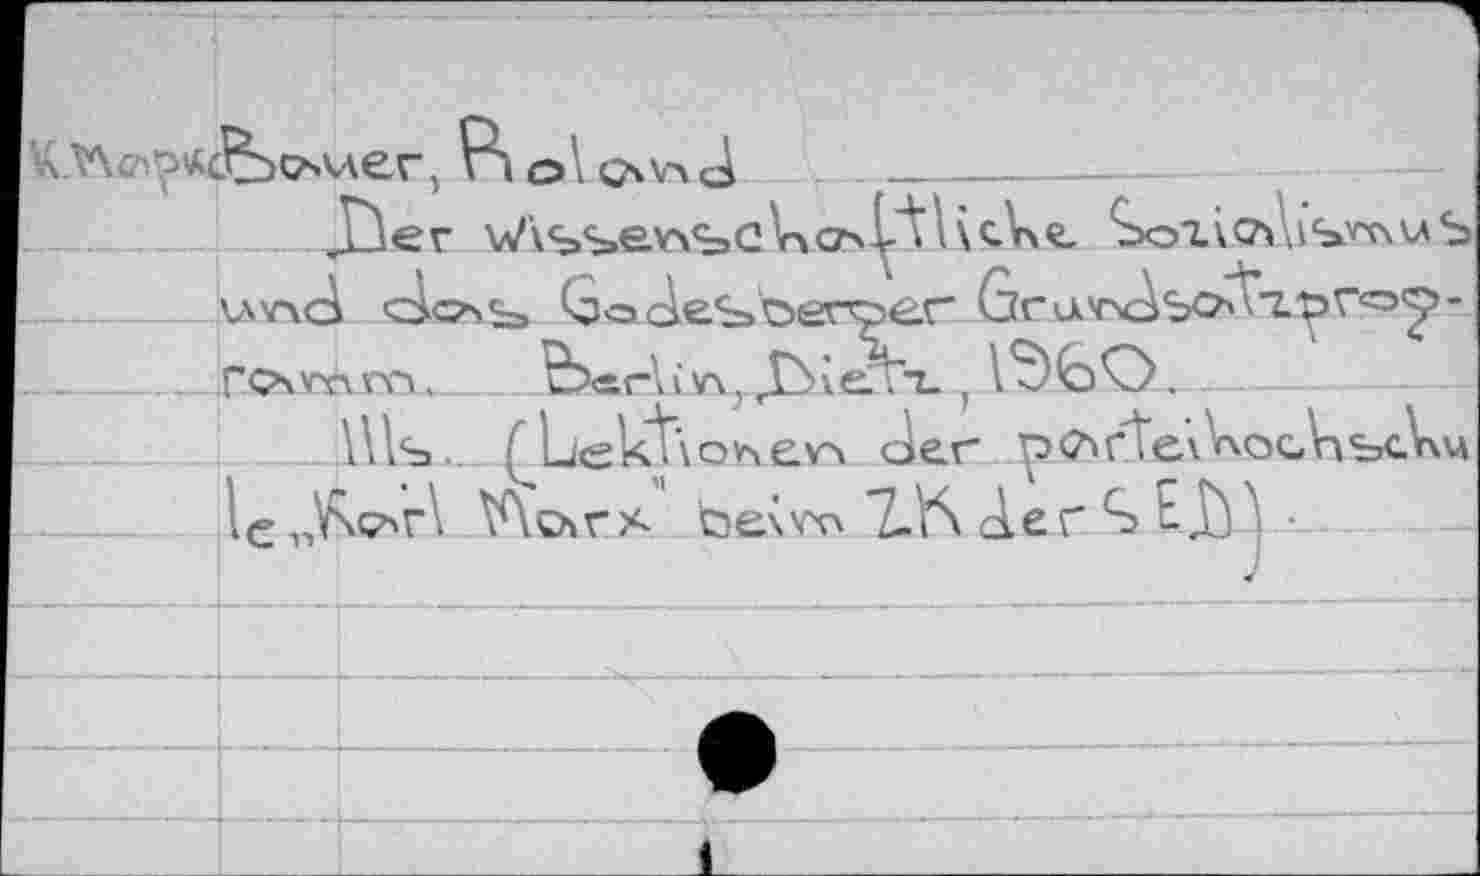 К.Маркс Bauer, Roland
Der wissenschaftliche Sozialismus
und das Godesberger Grundsatzprog-
ramm. Berlin, Dietz, 1960.
111s. (Lektionen der parteihochschu
le „Karl Marx" beim ZK der SED).